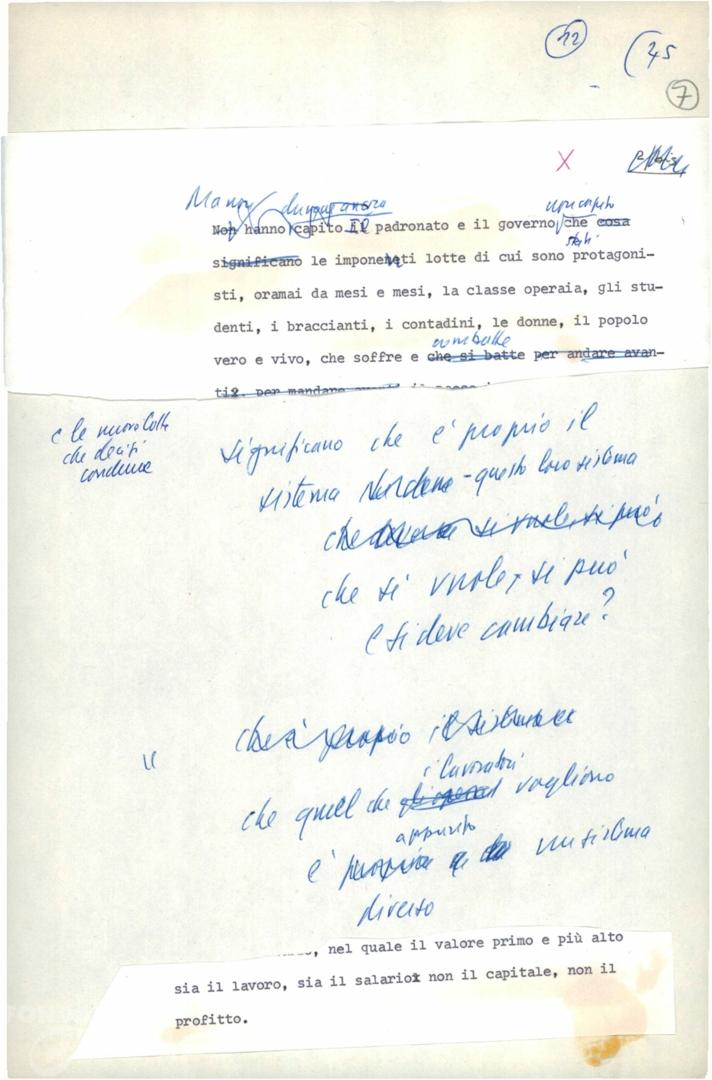 12
(45
7
X
Ma non dunque ancora non capito
Non hanno capito Il padronato e il governo che cosa
stati
significano le imponenti lotte di cui sono protagoni-
sti, oramai da mesi e mesi, la classe operaia, gli stu-
denti, i braccianti, i contadini, le donne, il popolo
combatte
vero e vivo, che soffre e che si batte per andare avan-
ti, per mandare avanti il
e le nuove lotte
che decisi
conduce
significano che è proprio il
sistema - questo loro sistema
che si vuole, si può
che si vuole, si può
e si deve cambiare?
che è proprio il sistema
"
i lavoratori
che quel che gli operai vogliono
appunto
è proprio un sistema
diverso
, nel quale il valore primo e più alto
sia il lavoro, sia il salario non il capitale, non il
profitto.